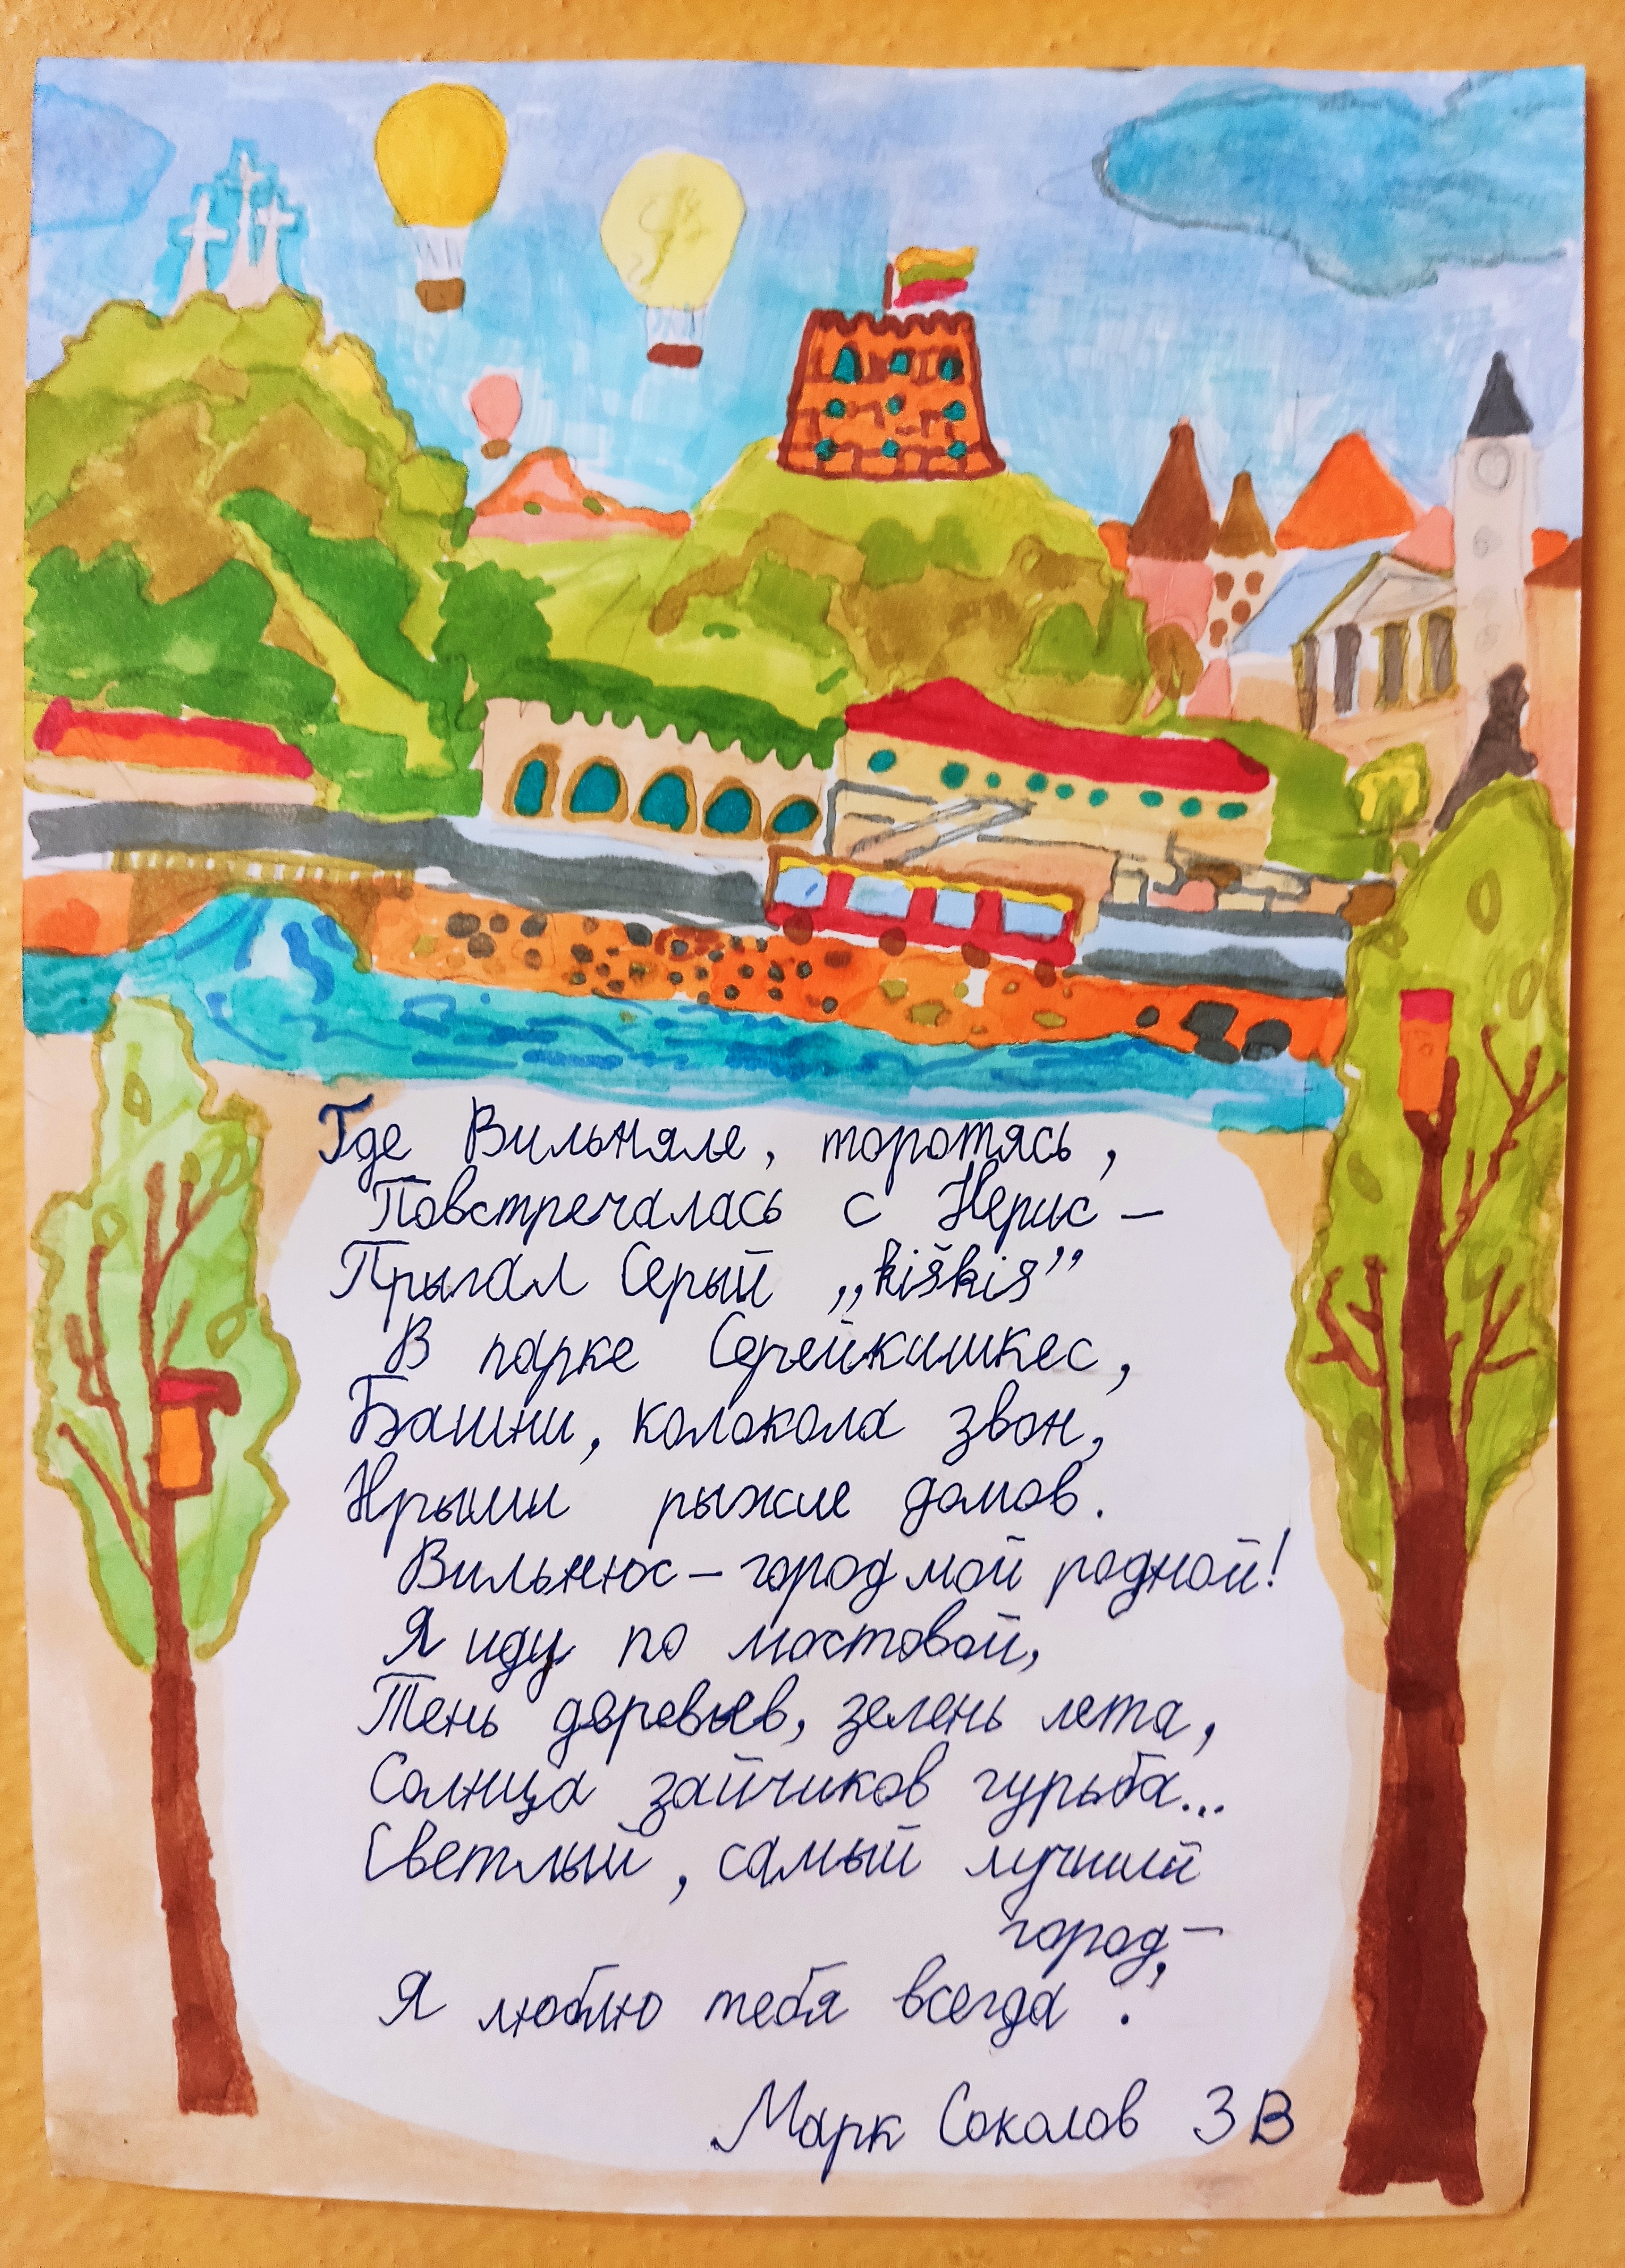 Где Вильняле, торотясь,
Повстречалась с Нерис –
Прыгал Серый „kiškis”
В парке Серейкишкес,
Башни, колокола звон,
Крыши рыжие домов.
Вильнюс – город мой родной!
Я иду по мостовой,
Тень деревьев, зелень лета,
Солнца зайчиков гурьба...
Светлый, самый лучший
город, –
Я люблю тебя всегда!
Марк Соколов 3 В